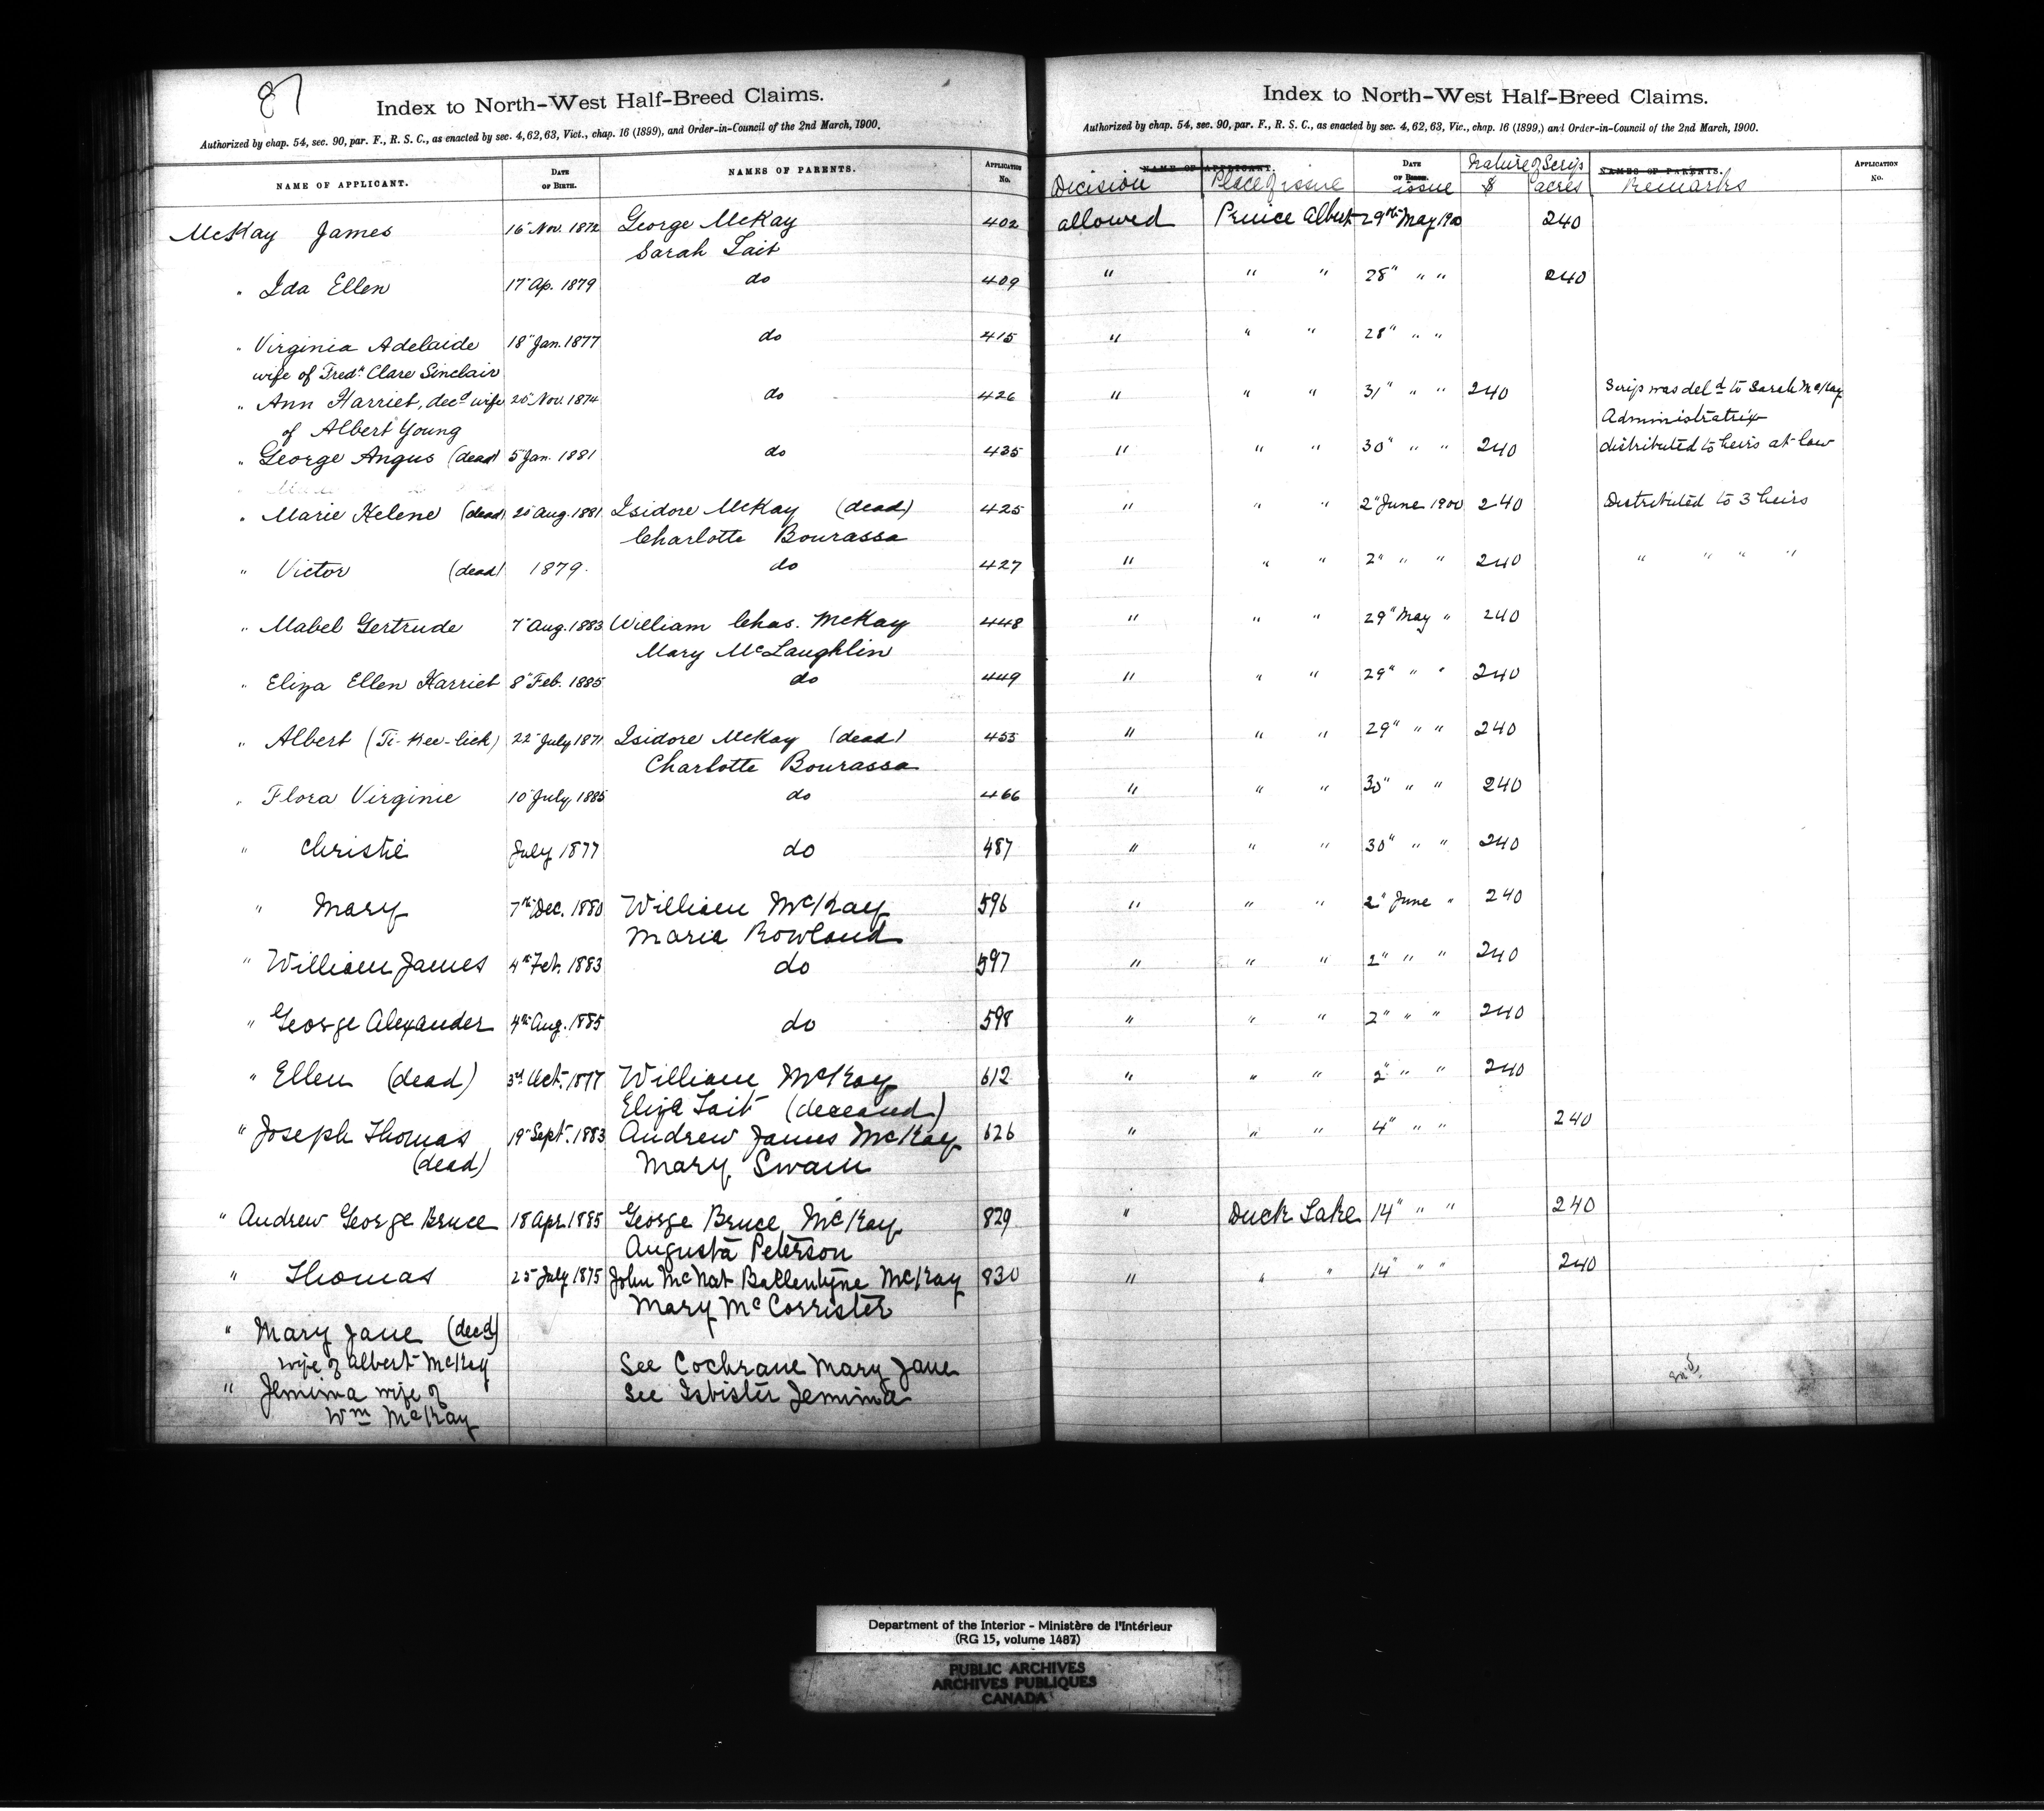 87
Index to North-West Half-Breed Claims.
Authorized by chap. 54, sec. 90, par. F., R. S. C., as enacted by sec. 4, 62, 63, Vict., chap. 16 (1899), and Order-in-Council of the 2nd March, 1900.
NAME OF APPLICANT. DATE OF BIRTH. NAMES OF PARENTS. APPLICATION No.
McKay James 16" Nov. 1872 George McKay 402
Sarah Tait
" Ida Ellen 17" Ap. 1879 do 409
" Virginia Adelaide 18" Jan. 1877 do 415
wife of Fredk Clare Sinclair
" Ann Harriet, decd wife 20" Nov. 1874 do 426
of Albert Young
" George Angus (dead) 5" Jan. 1881 do 435
" Marie Helene (dead) 20" Aug. 1881 Isidore McKay (dead) 425
Charlotte Bourassa
" Victor (dead) 1879. do 427
" Mabel Gertrude 7" Aug. 1883 William Chas. McKay 448
Mary McLaughlin
" Eliza Ellen Harriet 8" Feb. 1885 do 449
" Albert (Ti-Kee-lick) 22" July 1871 Isidore McKay (dead) 455
Charlotte Bourassa
" Flora Virginie 10" July 1885 do 466
" Christie July 1877 do 487
" Mary 7th Dec. 1880 William McKay 596
Maria Rowland
" William James 4th Feb. 1883 do 597
" George Alexander 4th Aug. 1885 do 598
" Ellen (dead) 3rd Oct. 1877 William McKay 612
Eliza Tait (deceased)
" Joseph Thomas 19" Sept. 1883 Andrew James McKay 626
(dead) Mary Swain
" Andrew George Bruce 18 Apr. 1885 George Bruce McKay 829
Augusta Peterson
" Thomas 25" July 1875 John McNat Ballentyne McKay 830
Mary McCorrister
" Mary Jane (decd)
wife of Albert McKay See Cochrane Mary Jane
" Jemima wife of See Isbister Jemima
Wm McKay
Index to North-West Half-Breed Claims.
Authorized by chap. 54, sec. 90, par. F., R. S. C., as enacted by sec. 4, 62, 63, Vic., chap. 16 (1899,) and Order-in-Council of the 2nd March, 1900.
NAME OF APPLICANT. DATE OF BIRTH. Nature of Scrip NAMES OF PARENTS. APPLICATION No.
Decision Place of issue issue $ acres Remarks
allowed Prince Albert 29th May 1900 240
" " " 28" " " 240
" " " 28" " "
" " " 31" " " 240 Scrip was deld to Sarah McKay
Administratrix
" " " 30" " " 240 distributed to heirs at law
" " " 2" June 1900 240 Distributed to 3 heirs
" " " 2" " " 240 " " " "
" " " 29" May " 240
" " " 29" " " 240
" " " 29" " " 240
" " " 30" " " 240
" " " 30" " " 240
" " " 2" June " 240
" " " 2" " " 240
" " " 2" " " 240
" " " 2" " " 240
" " " 4" " " 240
" Duck Lake 14" " " 240
" " " 14" " " 240
Department of the Interior - Ministère de l'Intérieur
(RG 15, volume 1487)
PUBLIC ARCHIVES
ARCHIVES PUBLIQUES
CANADA